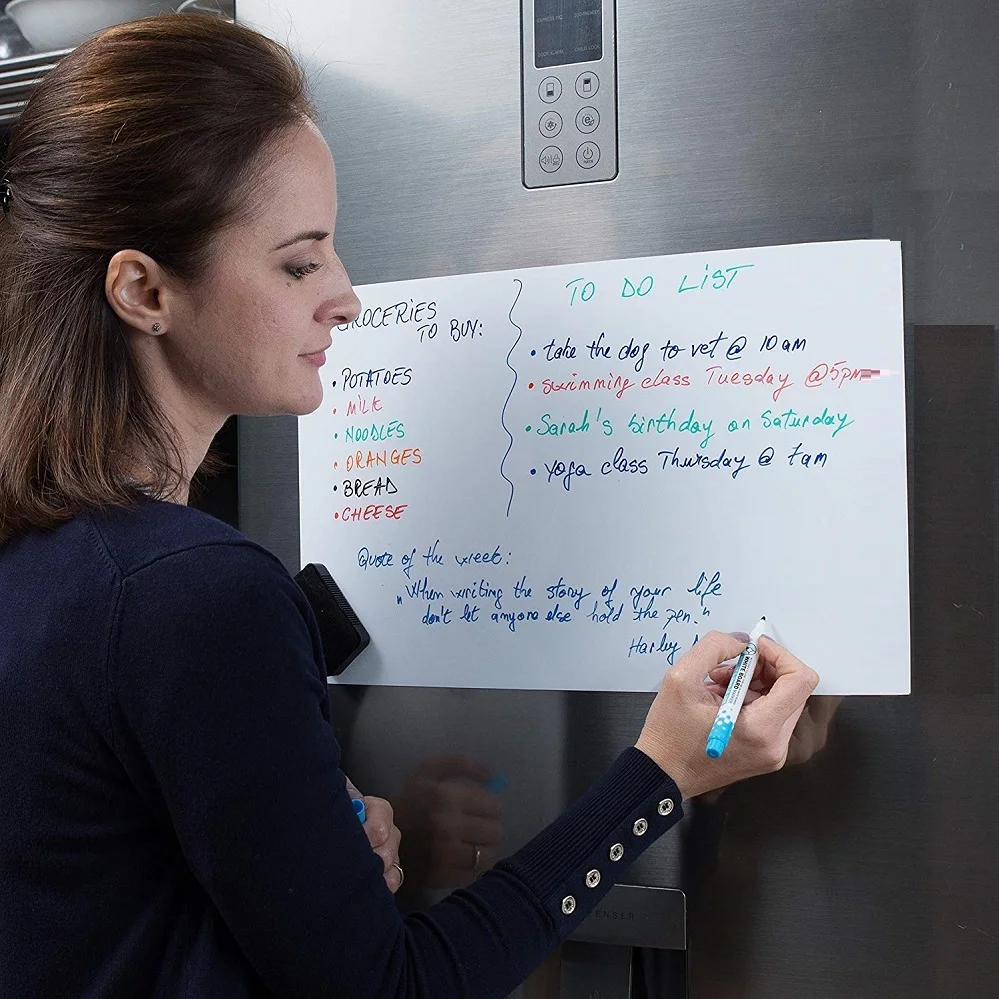 GROCERIES
TO BUY:
• POTATOES
• MILK
• NOODLES
• ORANGES
• BREAD
• CHEESE
TO DO LIST
• take the dog to vet @ 10 am
• swimming class Tuesday @ 5pm
• Sarah's birthday on Saturday
• yoga class Thursday @ 7am
Quote of the week:
„When writing the story of your life
don't let anyone else hold the pen."
Harley
WHITE BOARD